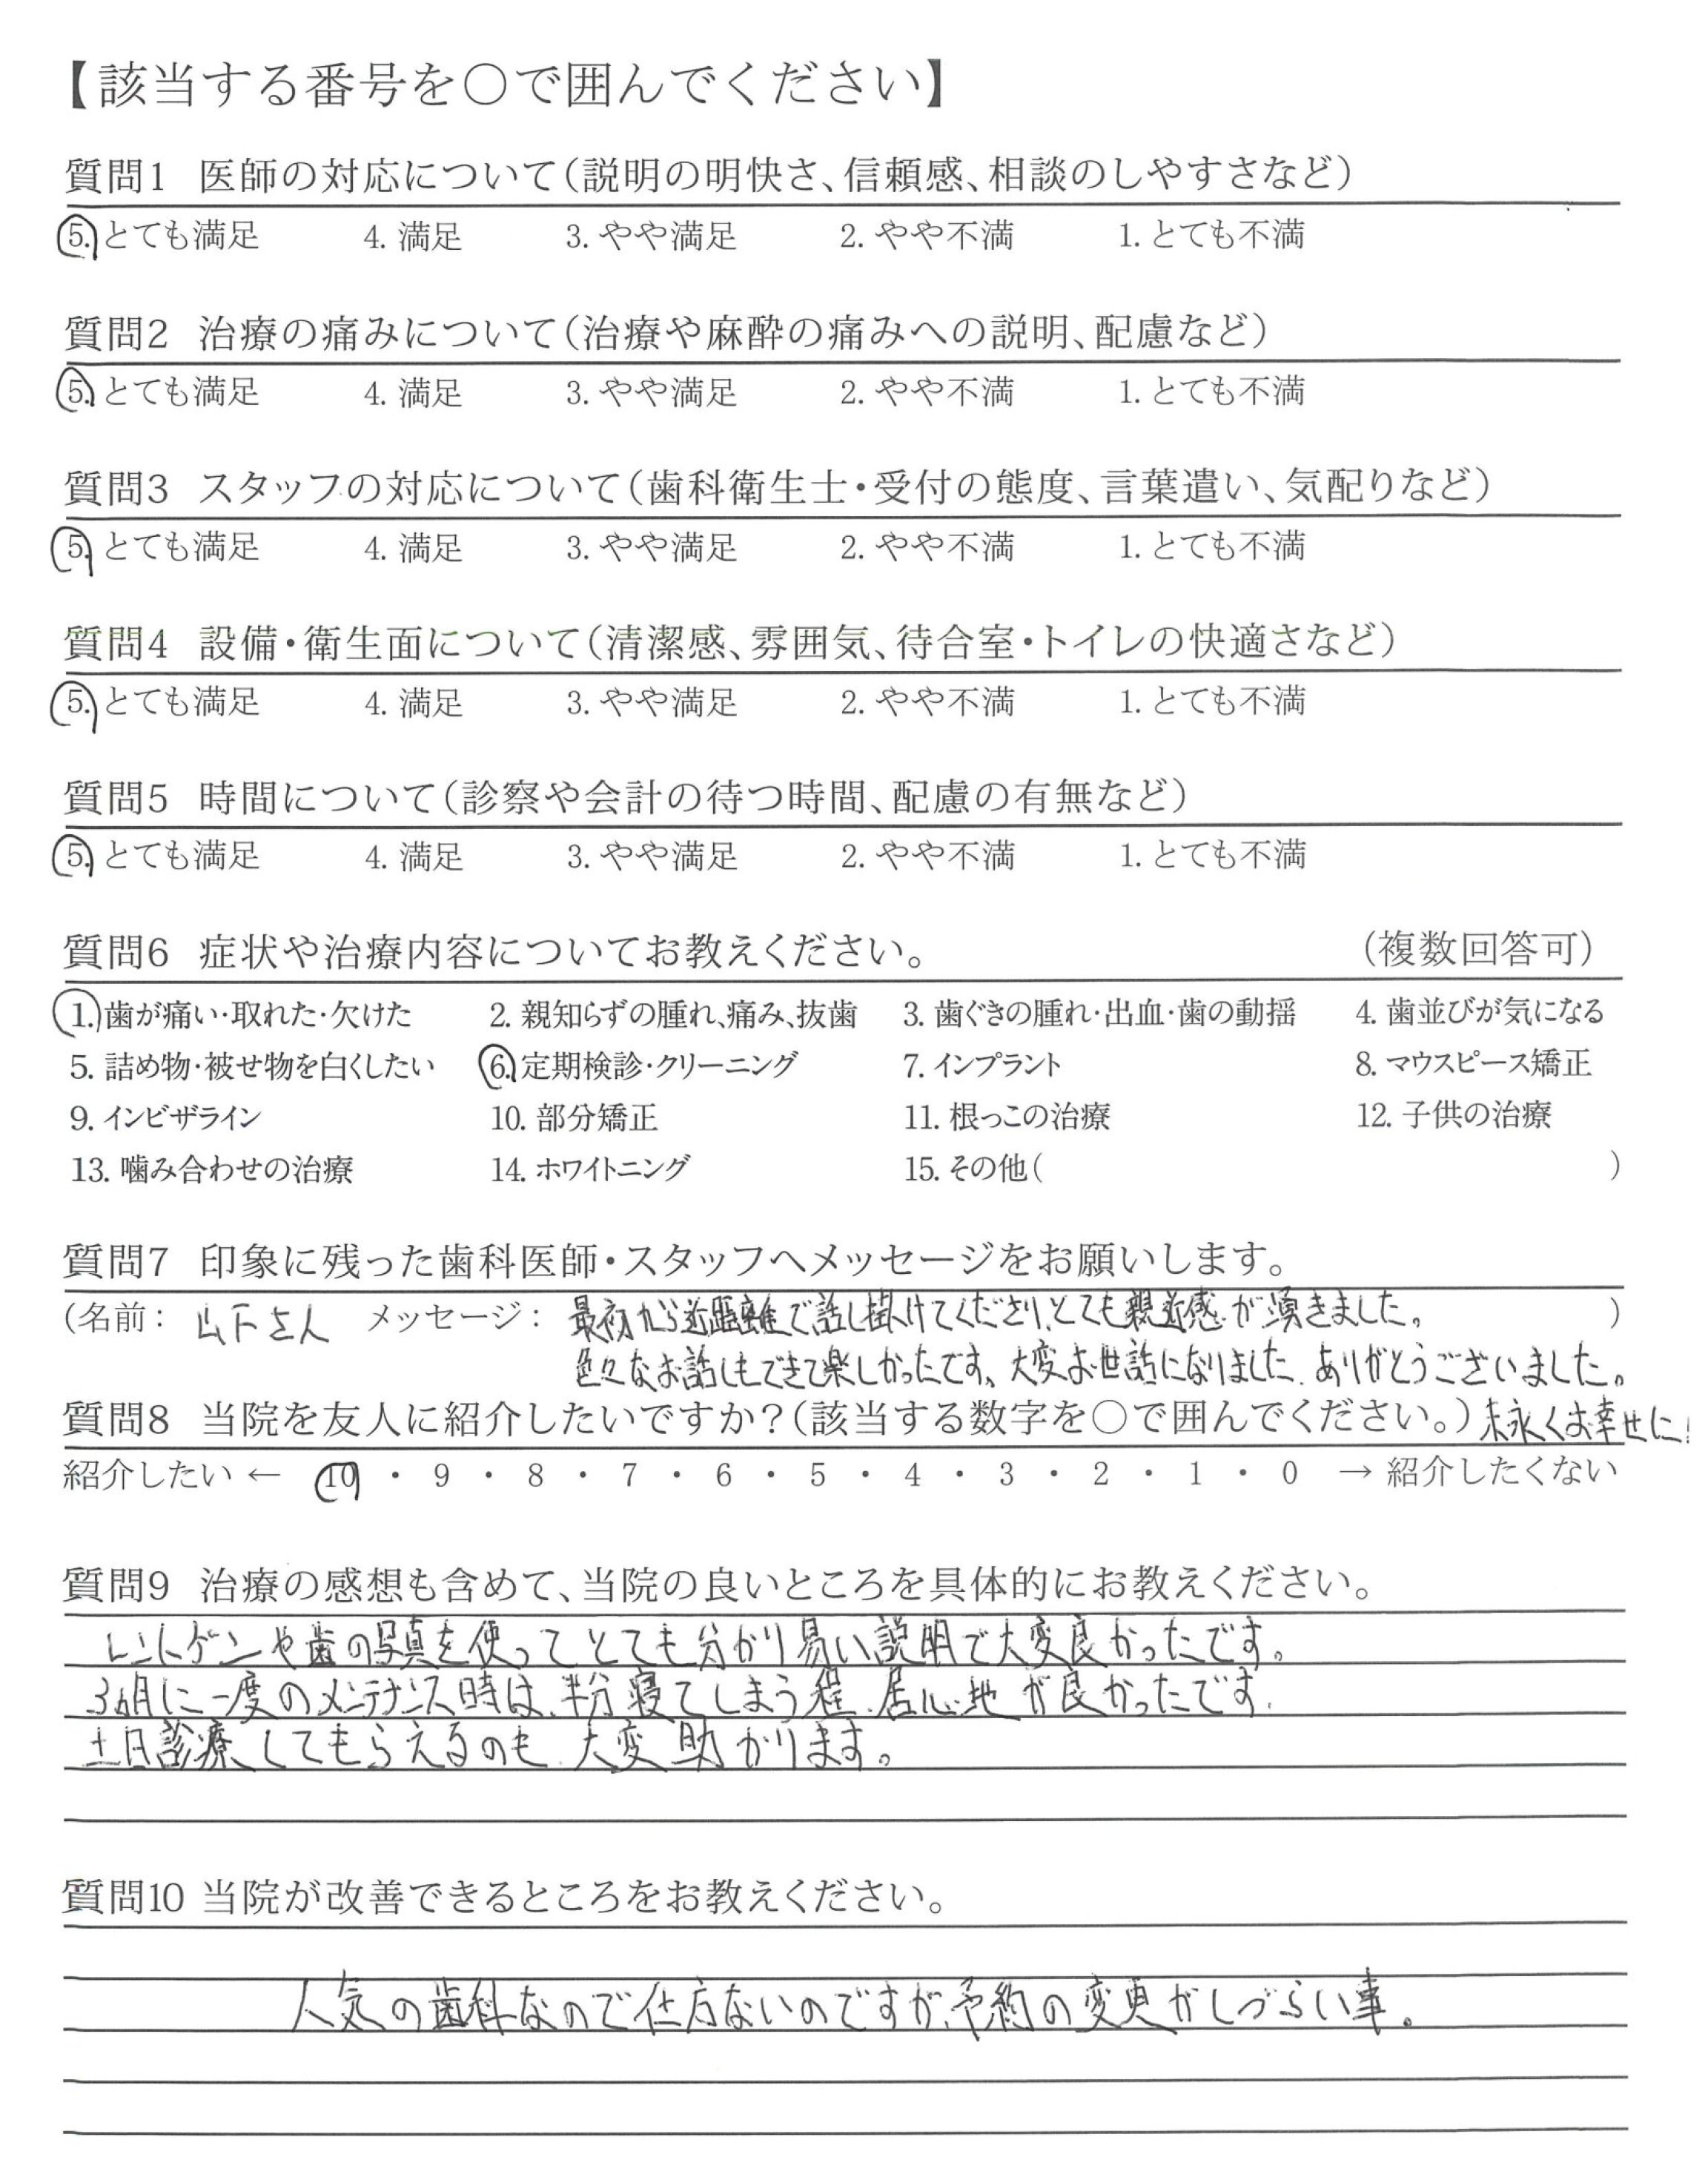 【該当する番号を○で囲んでください】
質問1 医師の対応について(説明の明快さ、信頼感、相談のしやすさなど)
5. とても満足 4. 満足 3. やや満足 2. やや不満 1. とても不満
質問2 治療の痛みについて(治療や麻酔の痛みへの説明、配慮など)
5. とても満足 4. 満足 3. やや満足 2. やや不満 1. とても不満
質問3 スタッフの対応について(歯科衛生士・受付の態度、言葉遣い、気配りなど)
5. とても満足 4. 満足 3. やや満足 2. やや不満 1. とても不満
質問4 設備・衛生面について(清潔感、雰囲気、待合室・トイレの快適さなど)
5. とても満足 4. 満足 3. やや満足 2. やや不満 1. とても不満
質問5 時間について(診察や会計の待つ時間、配慮の有無など)
5. とても満足 4. 満足 3. やや満足 2. やや不満 1. とても不満
質問6 症状や治療内容についてお教えください。 (複数回答可)
1. 歯が痛い・取れた・欠けた 2. 親知らずの腫れ、痛み、抜歯 3. 歯ぐきの腫れ・出血・歯の動揺 4. 歯並びが気になる
5. 詰め物・被せ物を白くしたい 6. 定期検診・クリーニング 7. インプラント 8. マウスピース矯正
9. インビザライン 10. 部分矯正 11. 根っこの治療 12. 子供の治療
13. 噛み合わせの治療 14. ホワイトニング 15. その他( )
質問7 印象に残った歯科医師・スタッフへメッセージをお願いします。
(名前: 山下さん メッセージ: 最初から近距離で話し掛けてくださり、とても親近感が湧きました。 )
色々なお話しもできて楽しかったです。大変お世話になりました。ありがとうございました。
質問8 当院を友人に紹介したいですか?(該当する数字を○で囲んでください。) 末永くお幸せに!
紹介したい ← 10 ・ 9 ・ 8 ・ 7 ・ 6 ・ 5 ・ 4 ・ 3 ・ 2 ・ 1 ・ 0 → 紹介したくない
質問9 治療の感想も含めて、当院の良いところを具体的にお教えください。
レントゲンや歯の写真を使ってとても分かり易い説明で大変良かったです。
3ヵ月に一度のメンテナンス時は、半分寝てしまう程、居心地が良かったです。
土日診療してもらえるのも、大変助かります。
質問10 当院が改善できるところをお教えください。
人気の歯科なので仕方ないのですが、予約の変更がしづらい事。